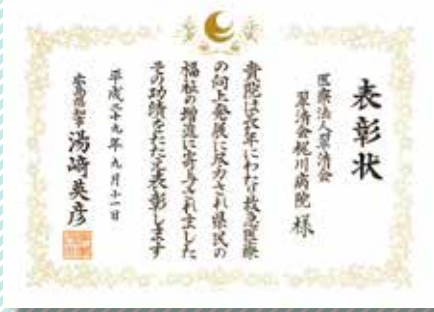 表彰状
医療法人翠清会
翠清会梶川病院 様
貴院は永年にわたり救急医療
の向上発展に尽力され県民の
福祉の増進に寄与されました
その功績をたたえ表彰します
平成二十九年九月十一日
広島県知事 湯﨑英彦